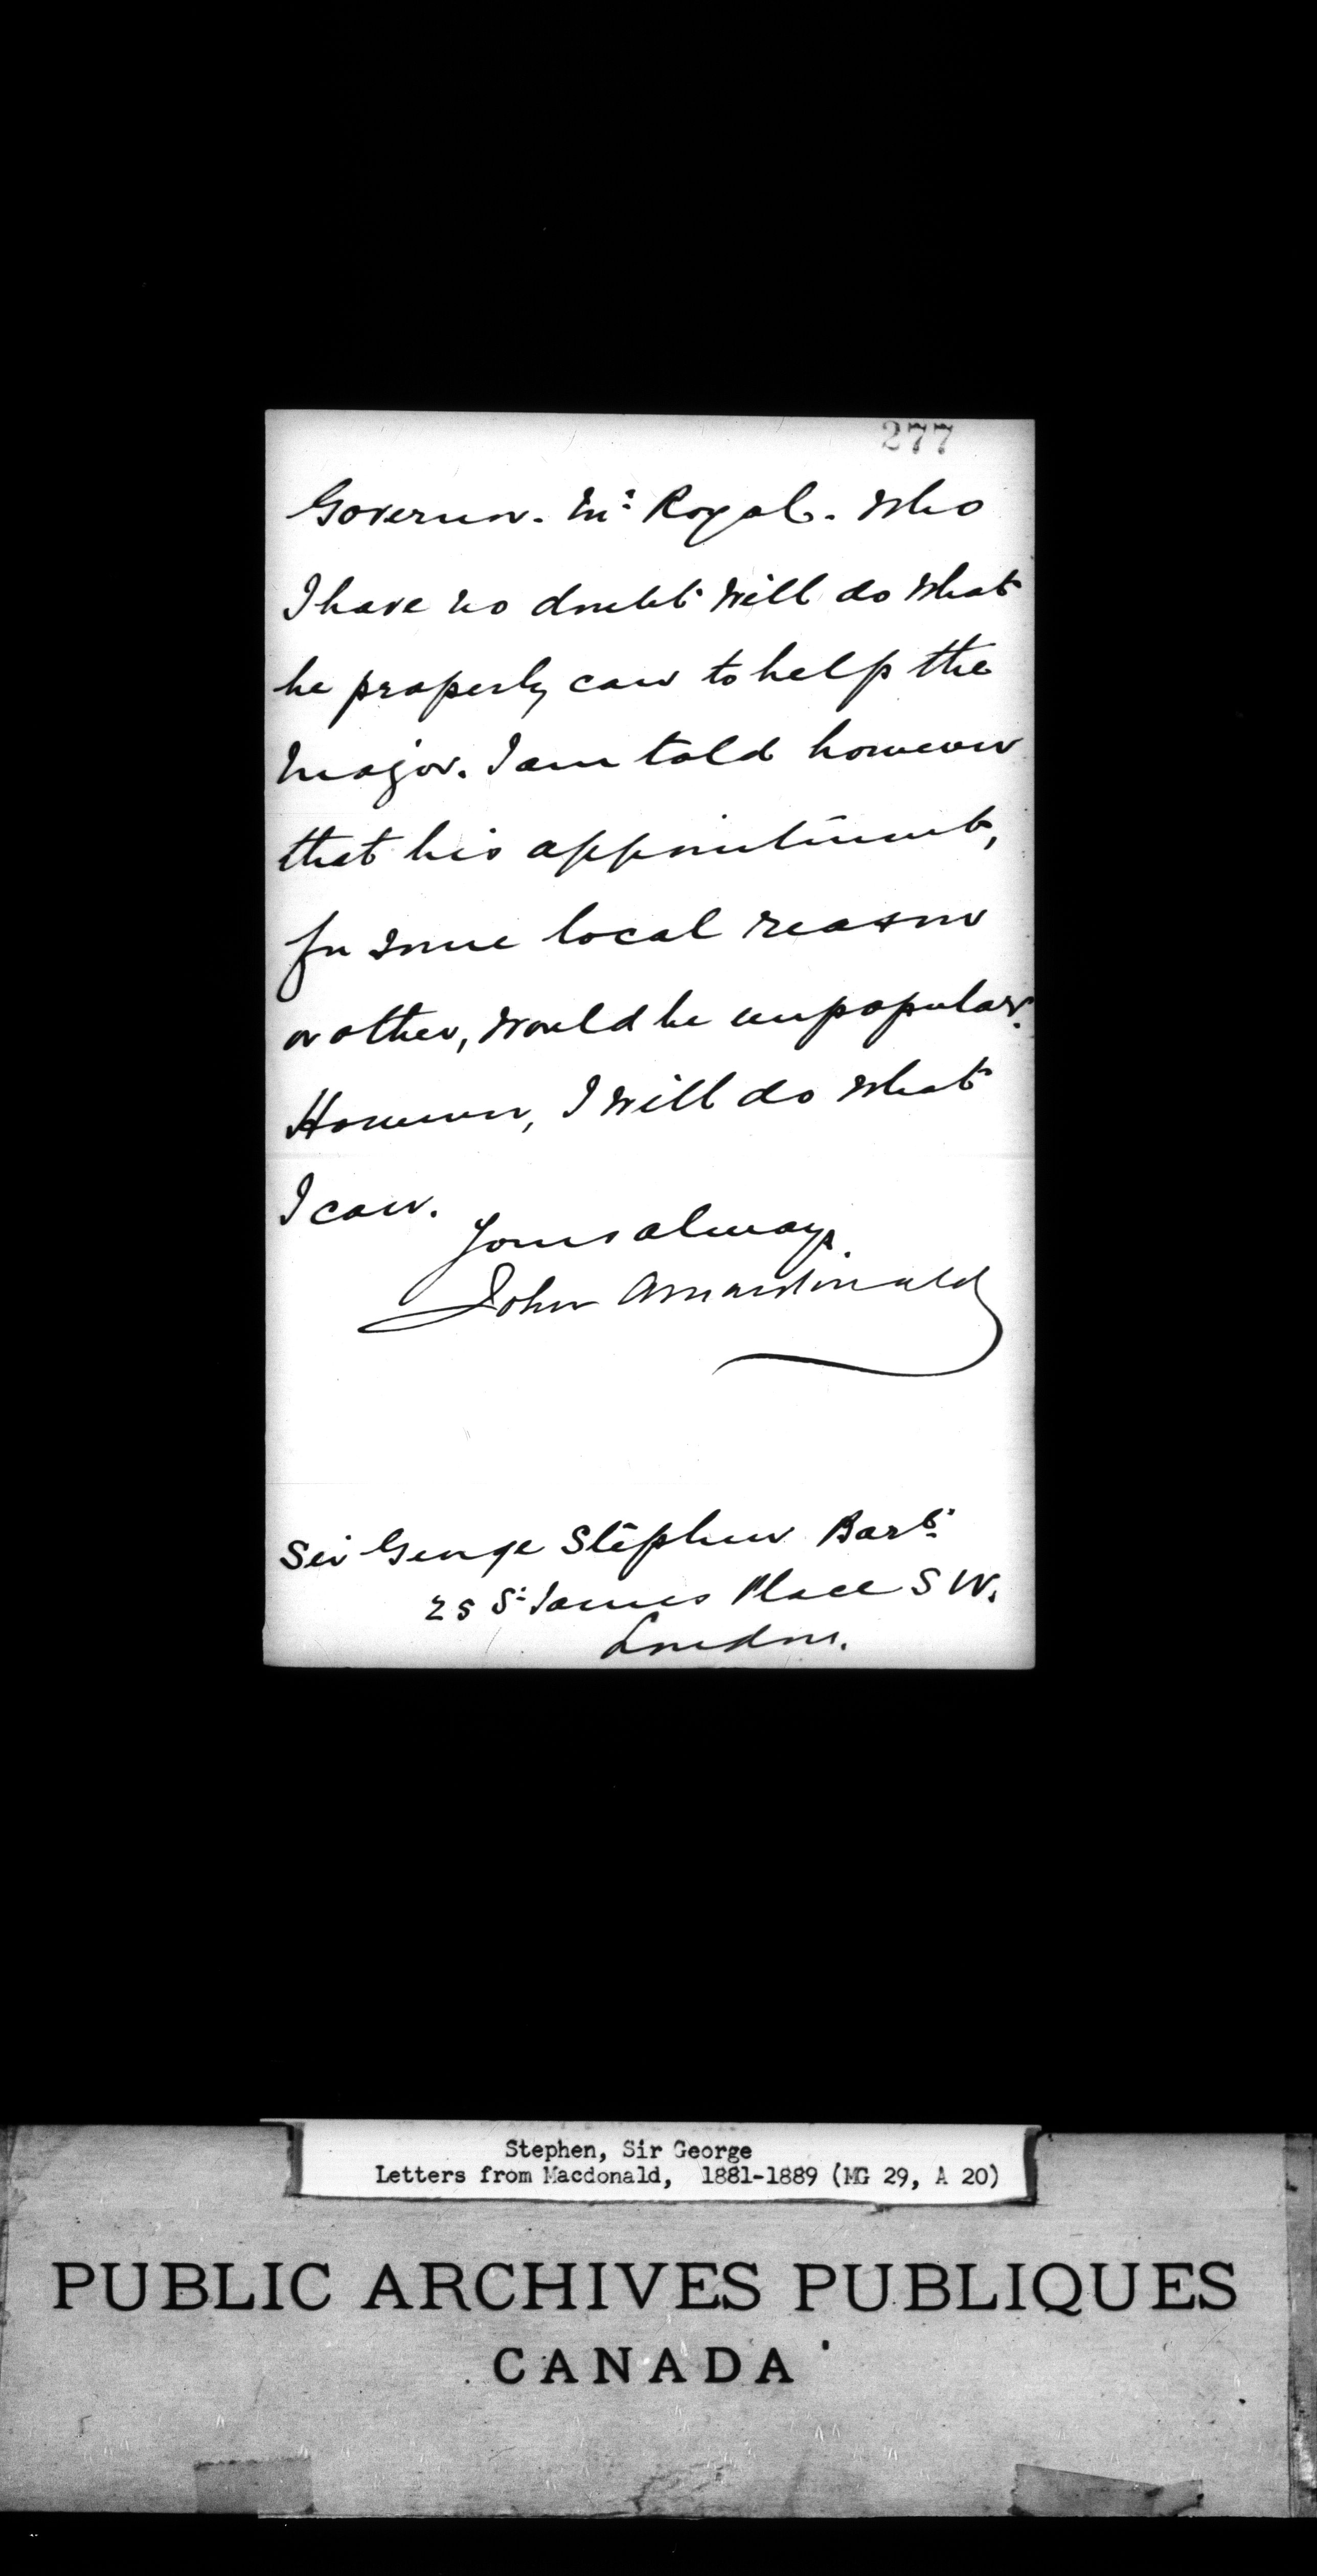 277
Governor. Mr. Royal. Who
I have no doubt will do what
he properly can to help the
Major. I am told however
that his appointment,
for some local reason
or other, would be unpopular.
However, I will do what
I can.
Yours always
John A Macdonald
Sir George Stephen Bart.
25 St. James Place S W.
London.
Stephen, Sir George
Letters from Macdonald, 1881-1889 (MG 29, A 20)
PUBLIC ARCHIVES PUBLIQUES
CANADA